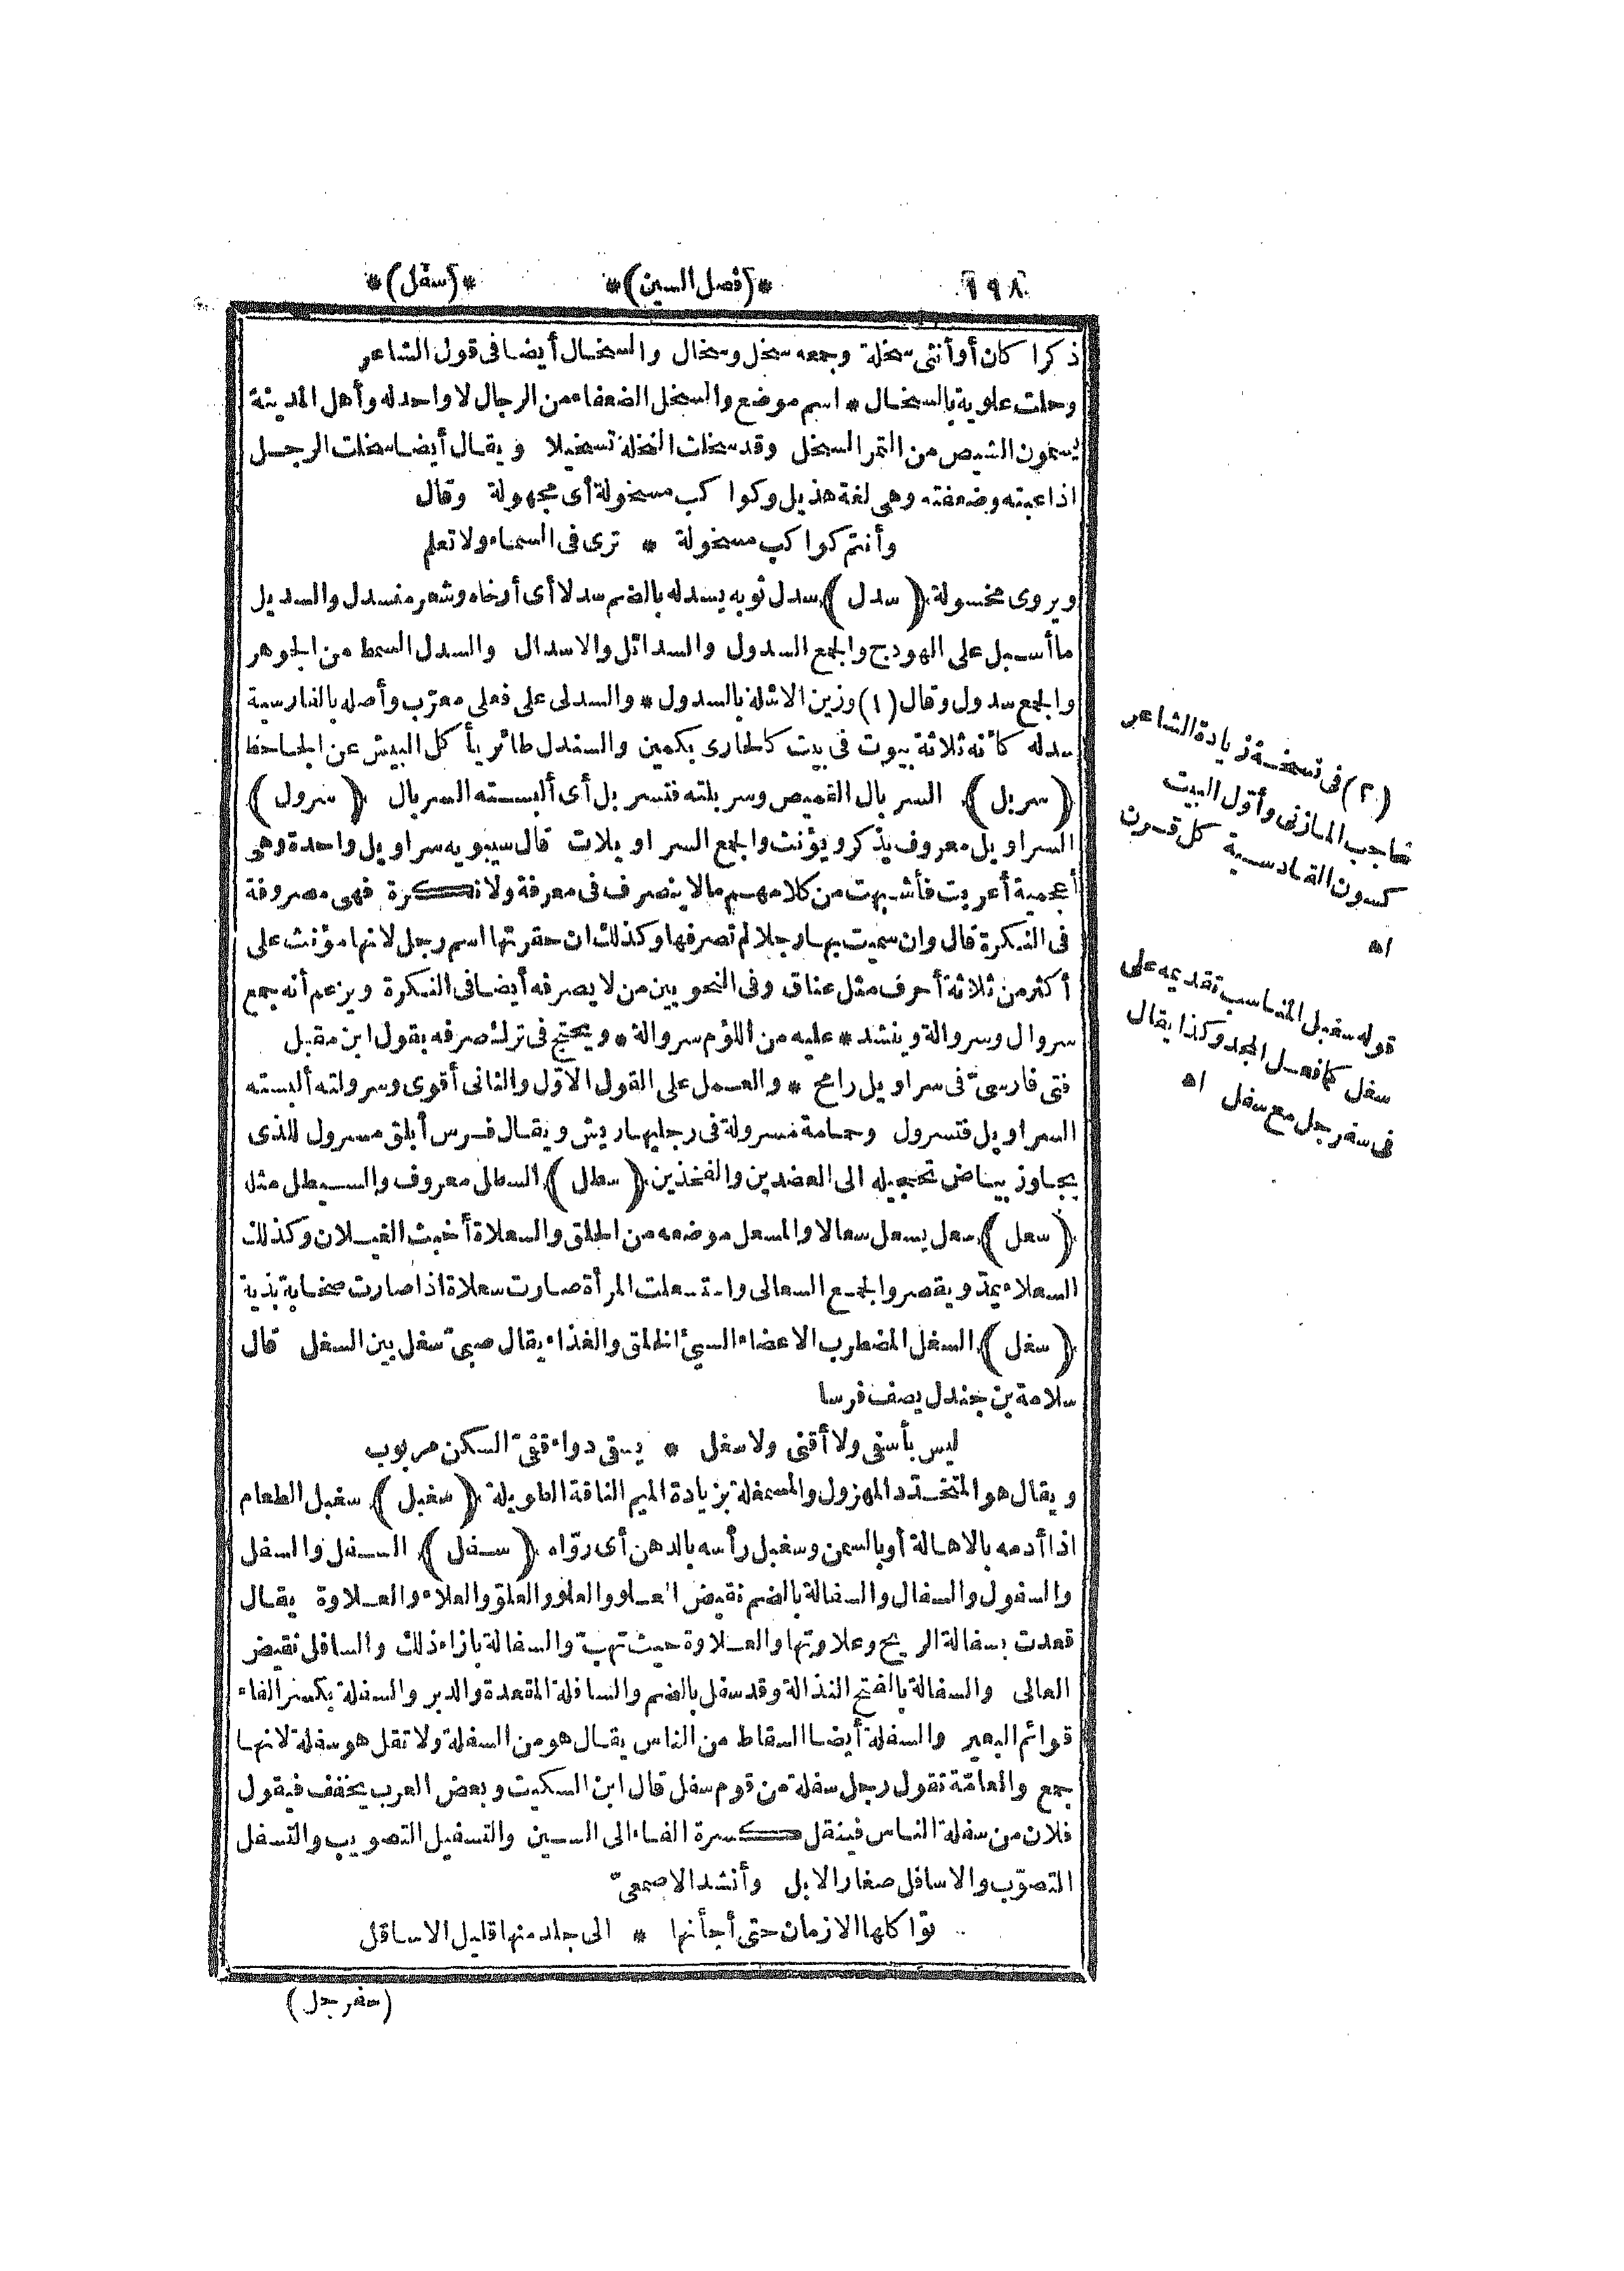 ١٩٨ *(فصل السين)* *(سفل)*
ذكرا كان أو أنثى سخلة وجمعه سخل وسخال والسخال أيضا فى قول الشاعر
وحلت علوية بالسخال * اسم موضع والسخل الضعفاء من الرجال لا واحد له وأهل المدينة
يسمون الشيص من التمر السخل وقد سخلت النخلة تسخيلا ويقال أيضا سخلت الرجل
اذا عبته وضعفته وهى لغة هذيل وكواكب مسخولة أى مجهولة وقال
وأنتم كواكب مسخولة * ترى فى السماء ولا تعلم
ويروى مخسولة (سدل) سدل ثوبه يسدله بالضم سدلا أى أرخاه وشعر منسدل والسديل
ما أسبل على الهودج والجمع السدول والسدائل والاسدال والسدل السمط من الجوهر
والجمع سدول وقال (١) وزين الاثلة بالسدول * والسدلى على فعلى معرّب وأصله بالفارسية
سدله كأنه ثلاثة بيوت فى بيت كالحارى بكمين والسندل طائر يأكل البيش عن الجاحظ
(سربل) السربال القميص وسربلته فتسربل أى ألبسته السربال (سرول)
السراويل معروف يذكر ويؤنث والجمع السراويلات قال سيبويه سراويل واحدة وهى
أعجمية أعربت فأشبهت من كلامهم مالا ينصرف فى معرفة ولا نكرة فهى مصروفة
فى النكرة قال وان سميت بها رجلا لم تصرفها وكذلك ان حقرتها اسم رجل لانها مؤنث على
أكثر من ثلاثة أحرف مثل عناق وفى النحويين من لا يصرفه أيضا فى النكرة ويزعم أنه جمع
سروال وسروالة وينشد * عليه من اللؤم سروالة * ويحتج فى ترك صرفه بقول ابن مقبل
فتى فارسىّ فى سراويل رامح * والعمل على القول الاوّل والثانى أقوى وسرولته ألبسته
السراويل فتسرول وحمامة مسرولة فى رجليها ريش ويقال فرس أبلق مسرول للذى
يجاوز بياض تحجيله الى العضدين والفخذين (سطل) السطل معروف والسيطل مثله
(سعل) سعل يسعل سعالا والمسعل موضعه من الحلق والسعلاة أخبث الغيلان وكذلك
السعلاء يمدّ ويقصر والجمع السعالى واستسعلت المرأة صارت سعلاة اذا صارت صخابة بذية
(سغل) السغل المضطرب الاعضاء السيئ الخلق والغذاء يقال صبىّ سغل بين السغل قال
سلامة بن جندل يصف فرسا
ليس بأسفى ولا أقنى ولا سغل * يسقى دواء قفىّ السكن مربوب
ويقال هو المتخدّد المهزول والمسمغلة بزيادة الميم الناقة الطويلة (سغبل) سغبل الطعام
اذا أدمه بالاهالة أو بالسمن وسغبل رأسه بالدهن أى روّاه (سفل) السفل والسفل
والسفول والسفال والسفالة بالضم نقيض العلو والعلو والعلوّ والعلاء والعلاوة يقال
قعدت بسفالة الريح وعلاوتها والعلاوة حيث تهبّ والسفالة بازاء ذلك والسافل نقيض
العالى والسفالة بالفتح النذالة وقد سفل بالضم والسافلة المقعدة والدبر والسفلة بكسر الفاء
قوائم البعير والسفلة أيضا السقاط من الناس يقال هو من السفلة ولا تقل هو سفلة لانها
جمع والعامّة تقول رجل سفلة من قوم سفل قال ابن السكيت وبعض العرب يخفف فيقول
فلان من سفلة الناس فينقل كسرة الفاء الى السين والتسفيل التصويب والتسفل
التصوّب والاسافل صغار الابل وأنشد الاصمعىّ
تواكلها الازمان حتى أجأنها * الى جلد منها قليل الاسافل
(سفرجل)
(٢) فى نسخة زيادة الشاعر
حاجب المازنى وأوّل البيت
كسون القادسية كل قرن
اه
قوله سغبل المناسب تقديمه على
سغل كما فعل المجد وكذا يقال
فى سفرجل مع سفل اه